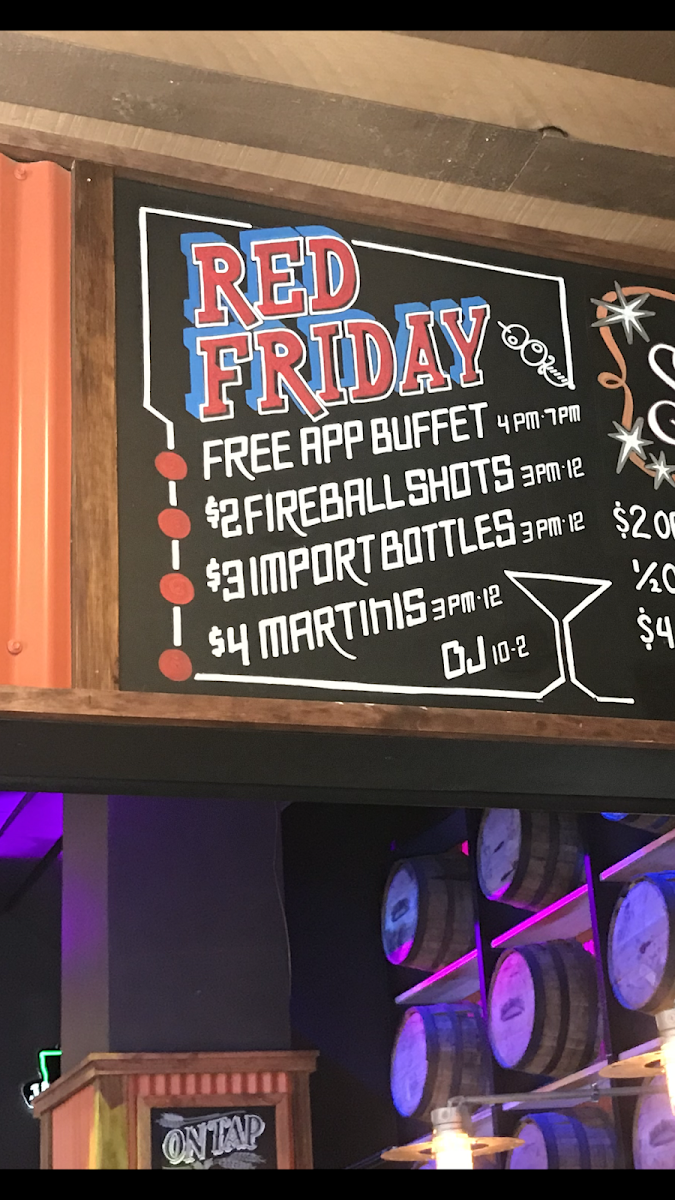 RED
FRIDAY
FREE APP BUFFET 4PM-7PM
$2 FIREBALL SHOTS 3PM-12
$3 IMPORT BOTTLES 3PM-12
$4 MARTINIS 3PM-12
DJ 10-2
$2
1/2
$4
ON TAP